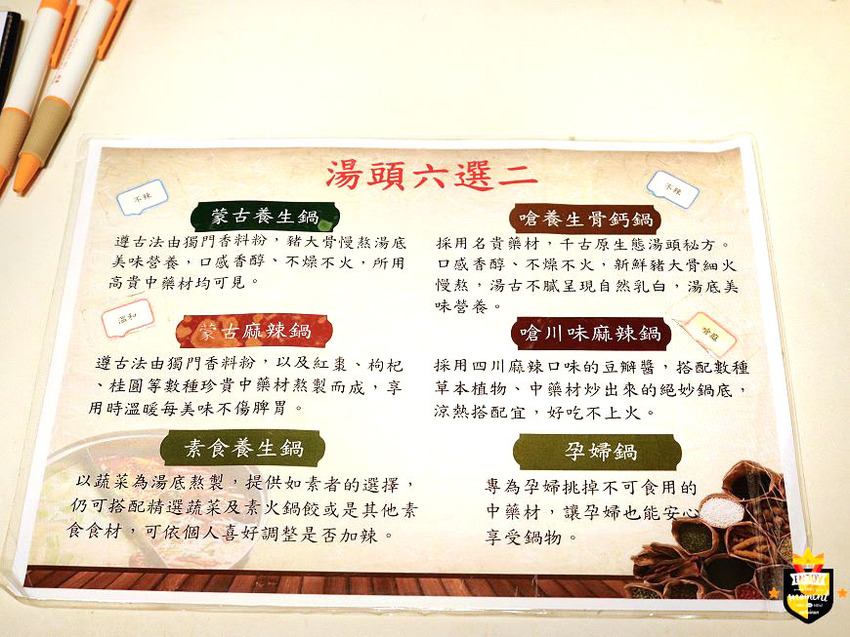 湯頭六選二
不辣
蒙古養生鍋
遵古法由獨門香料粉，豬大骨慢熬湯底
美味營養，口感香醇、不燥不火，所用
高貴中藥材均可見。
不辣
嗆養生骨鈣鍋
採用名貴藥材，千古原生態湯頭秘方。
口感香醇、不燥不火，新鮮豬大骨細火
慢熬，湯古不膩呈現自然乳白，湯底美
味營養。
溫和
蒙古麻辣鍋
遵古法由獨門香料粉，以及紅棗、枸杞
、桂圓等數種珍貴中藥材熬製而成，享
用時溫暖每美味不傷脾胃。
嗆川味麻辣鍋
採用四川麻辣口味的豆瓣醬，搭配數種
草本植物、中藥材炒出來的絕妙鍋底，
涼熱搭配宜，好吃不上火。
素食養生鍋
以蔬菜為湯底熬製，提供如素者的選擇，
仍可搭配精選蔬菜及素火鍋餃或是其他素
食食材，可依個人喜好調整是否加辣。
孕婦鍋
專為孕婦挑掉不可食用的
中藥材，讓孕婦也能安心
享受鍋物。